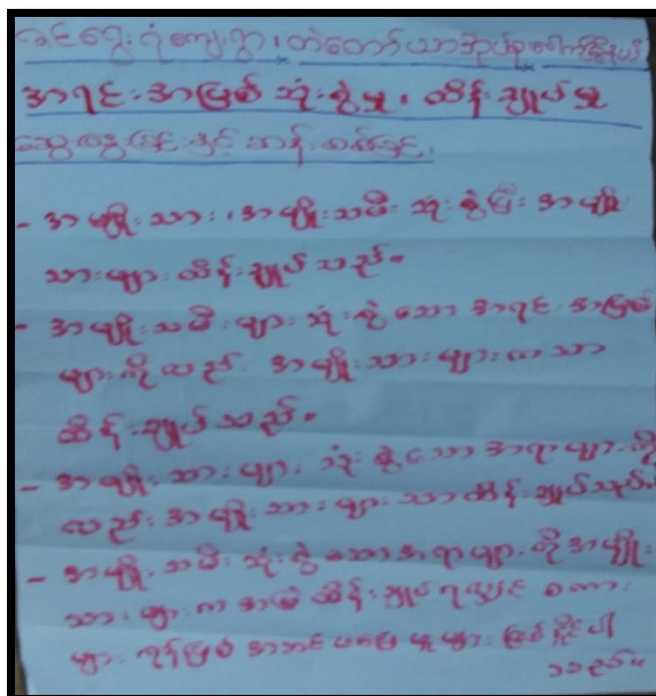 အရင်းအမြစ် သုံးစွဲမှု၊ ထိန်းချုပ်မှု
ဆွေးနွေးခြင်းနှင့် ဆန်းစစ်ခြင်း
- အမျိုးသား၊ အမျိုးသမီး သုံးစွဲပြီး အမျိုး
သားများ ထိန်းချုပ်သည်။
- အမျိုးသမီးများ သုံးစွဲသော အရင်းအမြစ်
များကိုလည်း အမျိုးသားများကသာ
ထိန်းချုပ်သည်။
- အမျိုးသားများ သုံးစွဲသော အရာများကို
လည်း အမျိုးသားများသာ ထိန်းချုပ်သည်။
- အမျိုးသမီးသုံးစွဲသောအရာများကို အမျိုး
သားများက အမြဲ ထိန်းချုပ်ရင် စကား
များ ရန်ဖြစ် မှုများ ဖြစ်နိုင်ပါ
သည်။